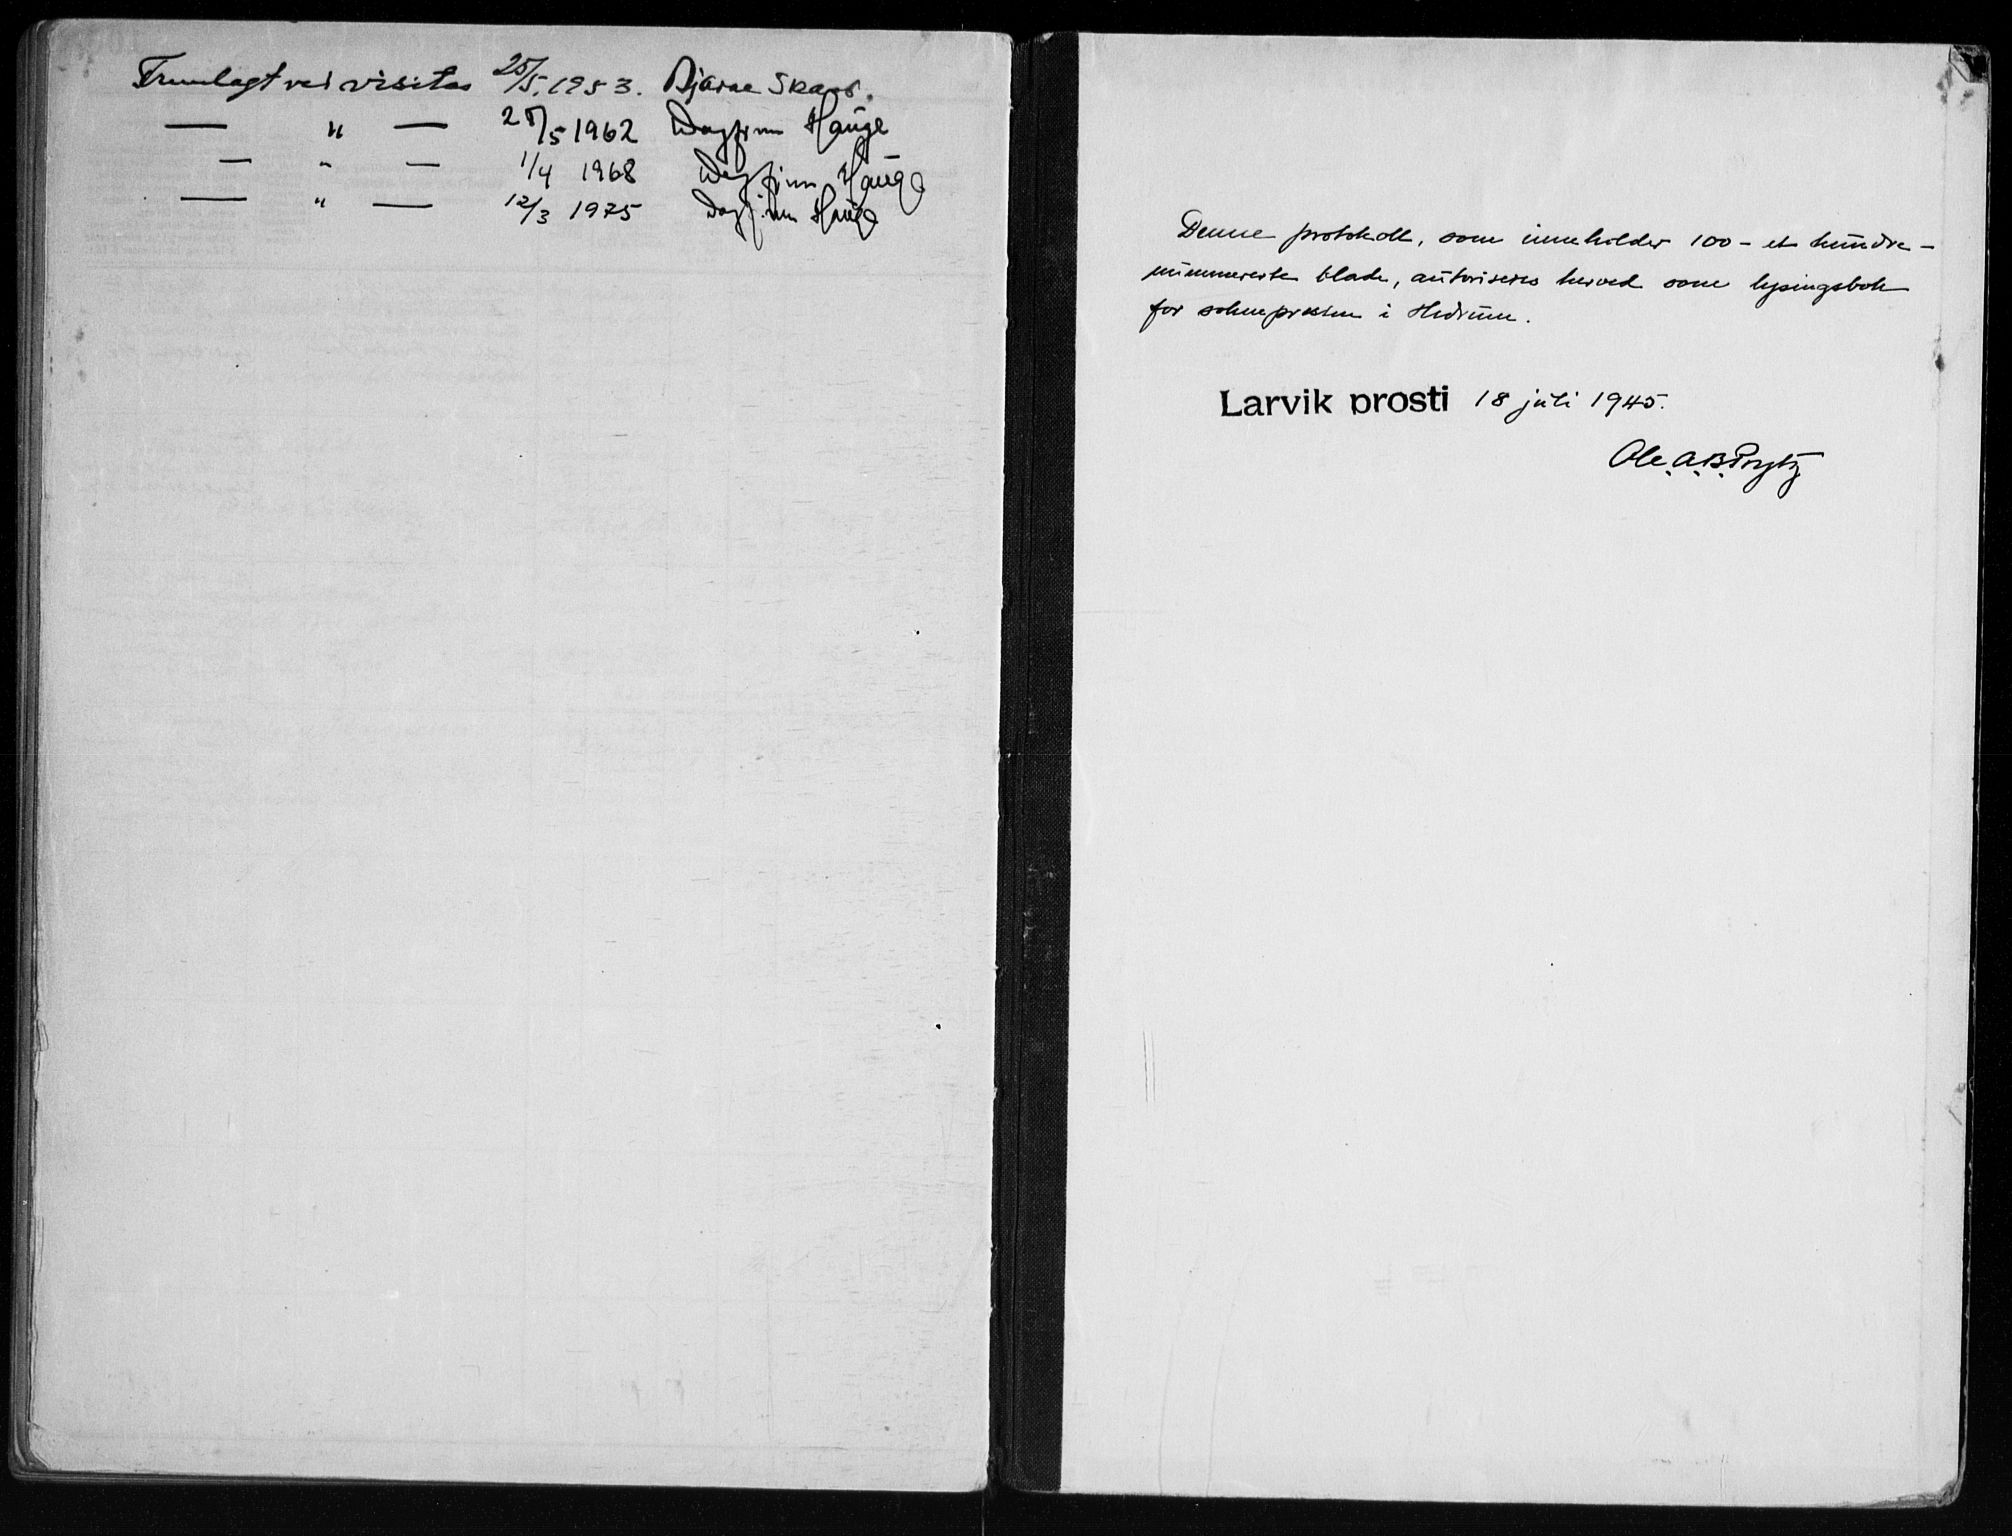 Fremlagt ved visitas 25/5. 1953. Bjarne Skard.
— " — 25/5 1962 Dagfinn Hauge
— " — 1/4 1968 Dagfinn Hauge
— " — 12/3 1975 Dagfinn Hauge
Denne protokoll, som inneholder 100 - et hundre -
nummererte blade, autoriseres herved som lysingsbok
for soknepresten i Hedrum.
Larvik prosti 18 juli 1945.
Ole. A. B. Prytz